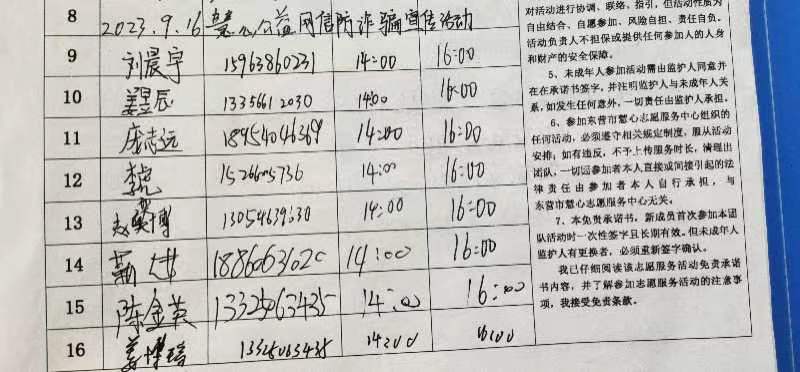 8 2023.9.16 慧心公益网信防诈骗宣传活动
9 刘晨宇 15963860231 14:00 16:00
10 姜昱辰 13356612030 14:00 16:00
11 庞志远 18954046369 14:00 16:00
12 14:00 16:00
13 14:00 16:00
14 14:00 16:00
15 陈金英 13325063435 14:00 16:00
16 姜博瑞 13325063435 14:00 16:00
对活动进行协调、联络、指引,但活动性质为
自由结合、自愿参加、风险自担、责任自负。
活动负责人不担保或提供任何参加人的人身
和财产的安全保障。
5、未成年人参加活动需由监护人同意并
在在承诺书签字,并注明监护人与未成年人关
系,如发生任何意外,一切责任由监护人承担。
6、参加东营市慧心志愿服务中心组织的
任何活动,必须遵守相关规定制度,服从活动
安排;如有违反,不予上传服务时长,清理出
团队,一切因参加者本人直接或间接引起的法
律责任由参加者本人自行承担,与
东营市慧心志愿服务中心无关。
7、本免责承诺书,新成员首次参加本团
队活动时一次性签字且长期有效。但未成年人
监护人有更换者,必须重新签字确认。
我已仔细阅读该志愿服务活动免责承诺
书内容,并了解参加志愿服务活动的注意事
项,我接受免责条款。